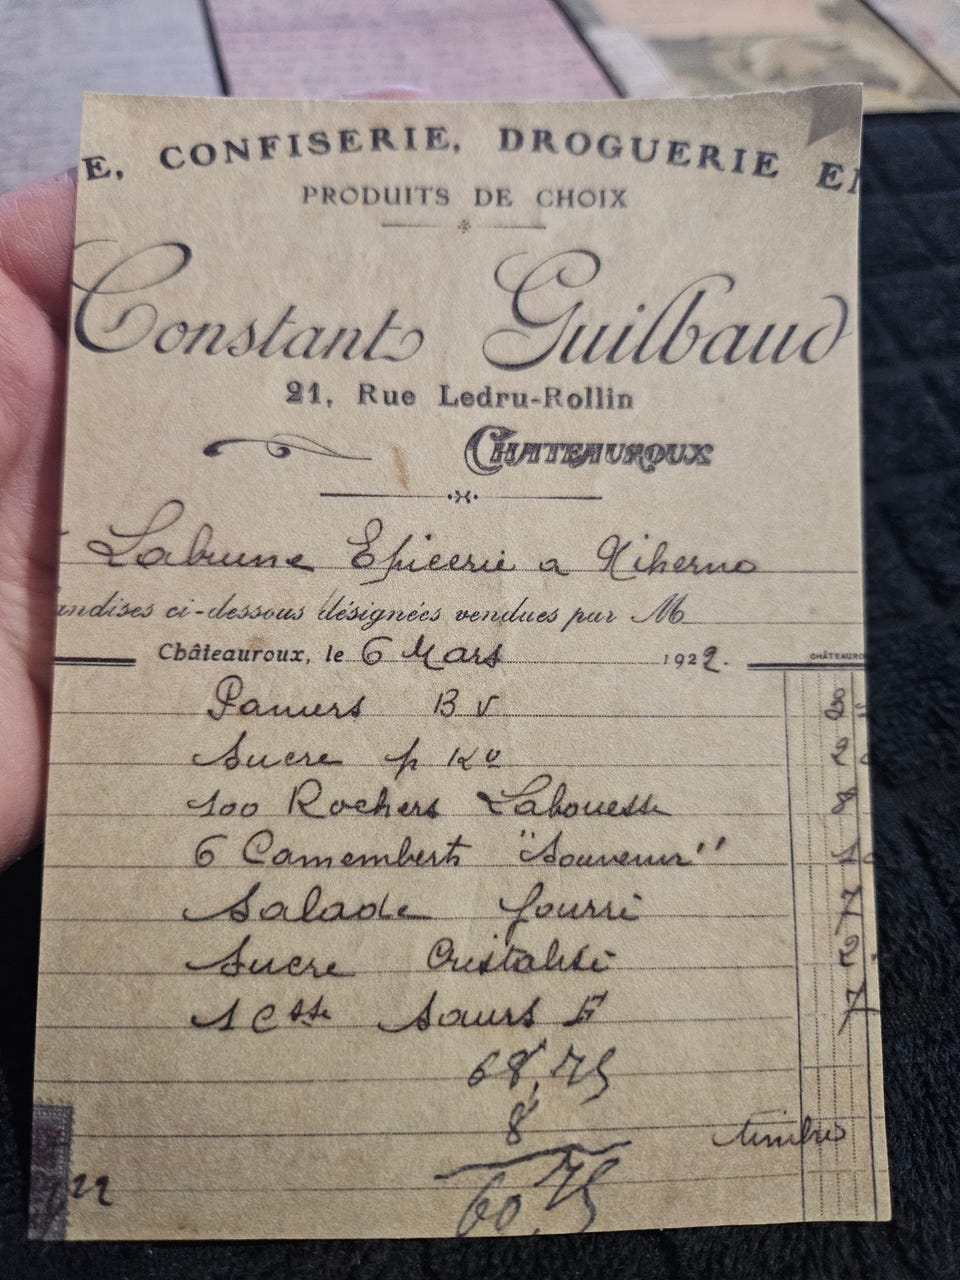 E, CONFISERIE, DROGUERIE E
PRODUITS DE CHOIX
Constant Guilbaud
21, Rue Ledru-Rollin
CHATEAUROUX
Labrune Epicerie a Niherne
andises ci-dessous désignées vendues par M
Châteauroux, le 6 Mars 1922.
CHÂTEAURO
Paniers B V 20
Sucre p Ko 2
100 Rochers Labouesse 8
6 Camemberts "Souvenir" 1
Salade fourré 7
Sucre Cristalisé 2
1 Csse Saurs F 7
68,75
8 timbre
60,75
22